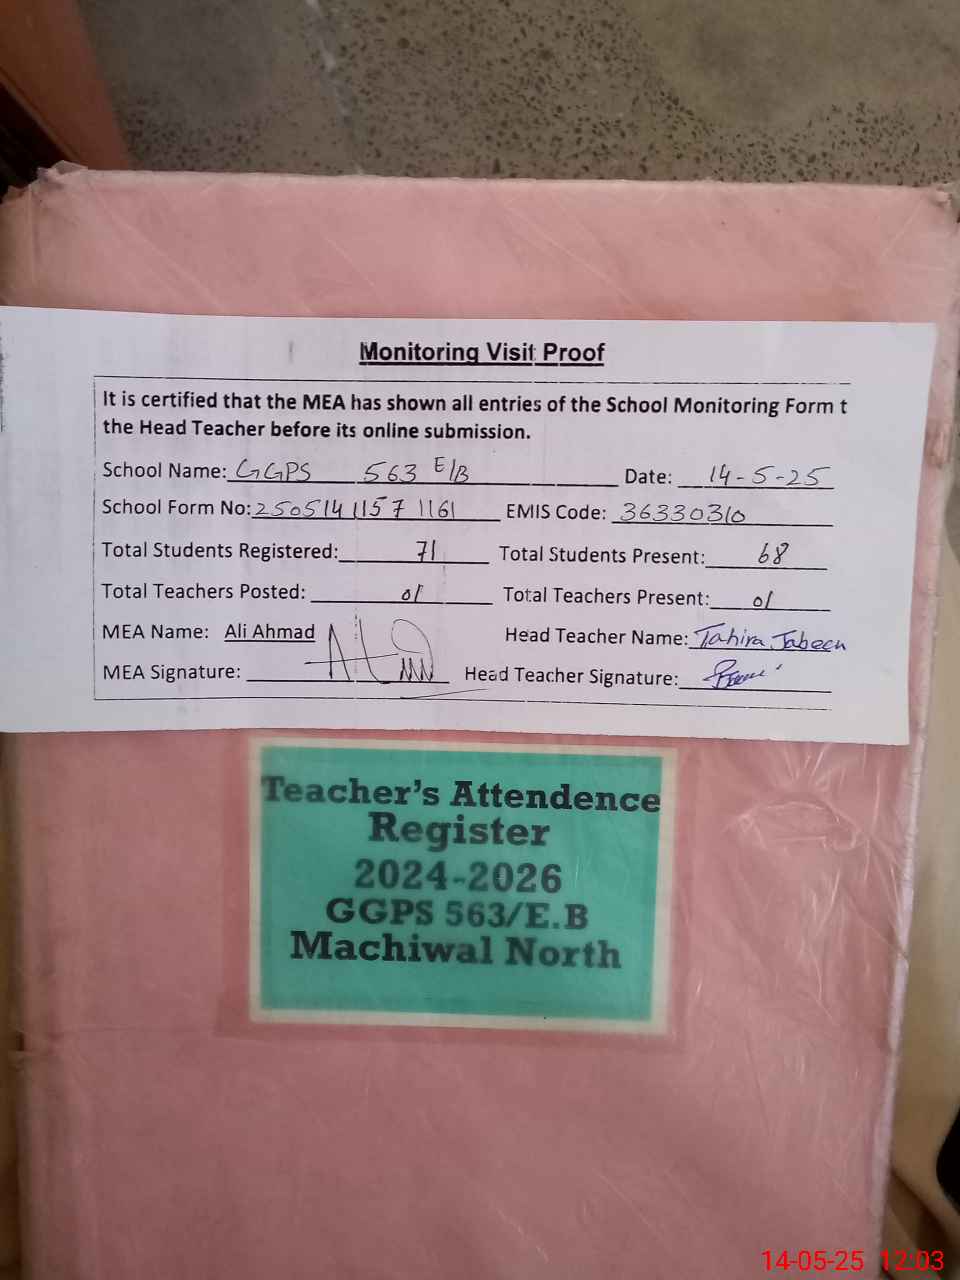 Monitoring Visit Proof
It is certified that the MEA has shown all entries of the School Monitoring Form t
the Head Teacher before its online submission.
School Name: GGPS 563 E/B Date: 14-5-25
School Form No: 25051411571161 EMIS Code: 36330310
Total Students Registered: 71 Total Students Present: 68
Total Teachers Posted: 01 Total Teachers Present: 01
MEA Name: Ali Ahmad Head Teacher Name: Tahira Jabeen
MEA Signature: Head Teacher Signature:
Teacher's Attendence
Register
2024-2026
GGPS 563/E.B
Machiwal North
14-05-25 12:03